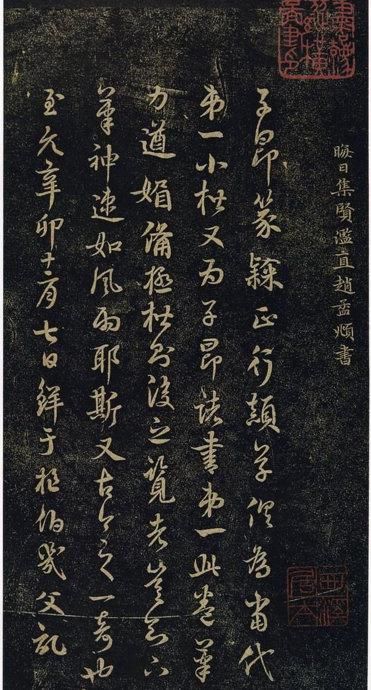 晦日集賢濫直趙孟頫書
子昂篆隸正行顛草俱為當代
弟一小楷又為子昂諸書弟一此卷筆
力遒媚備極楷則後之覽者豈知下
筆神速如風雨耶斯又古今之一奇也
至元辛卯十二月七日鮮于樞伯幾父記